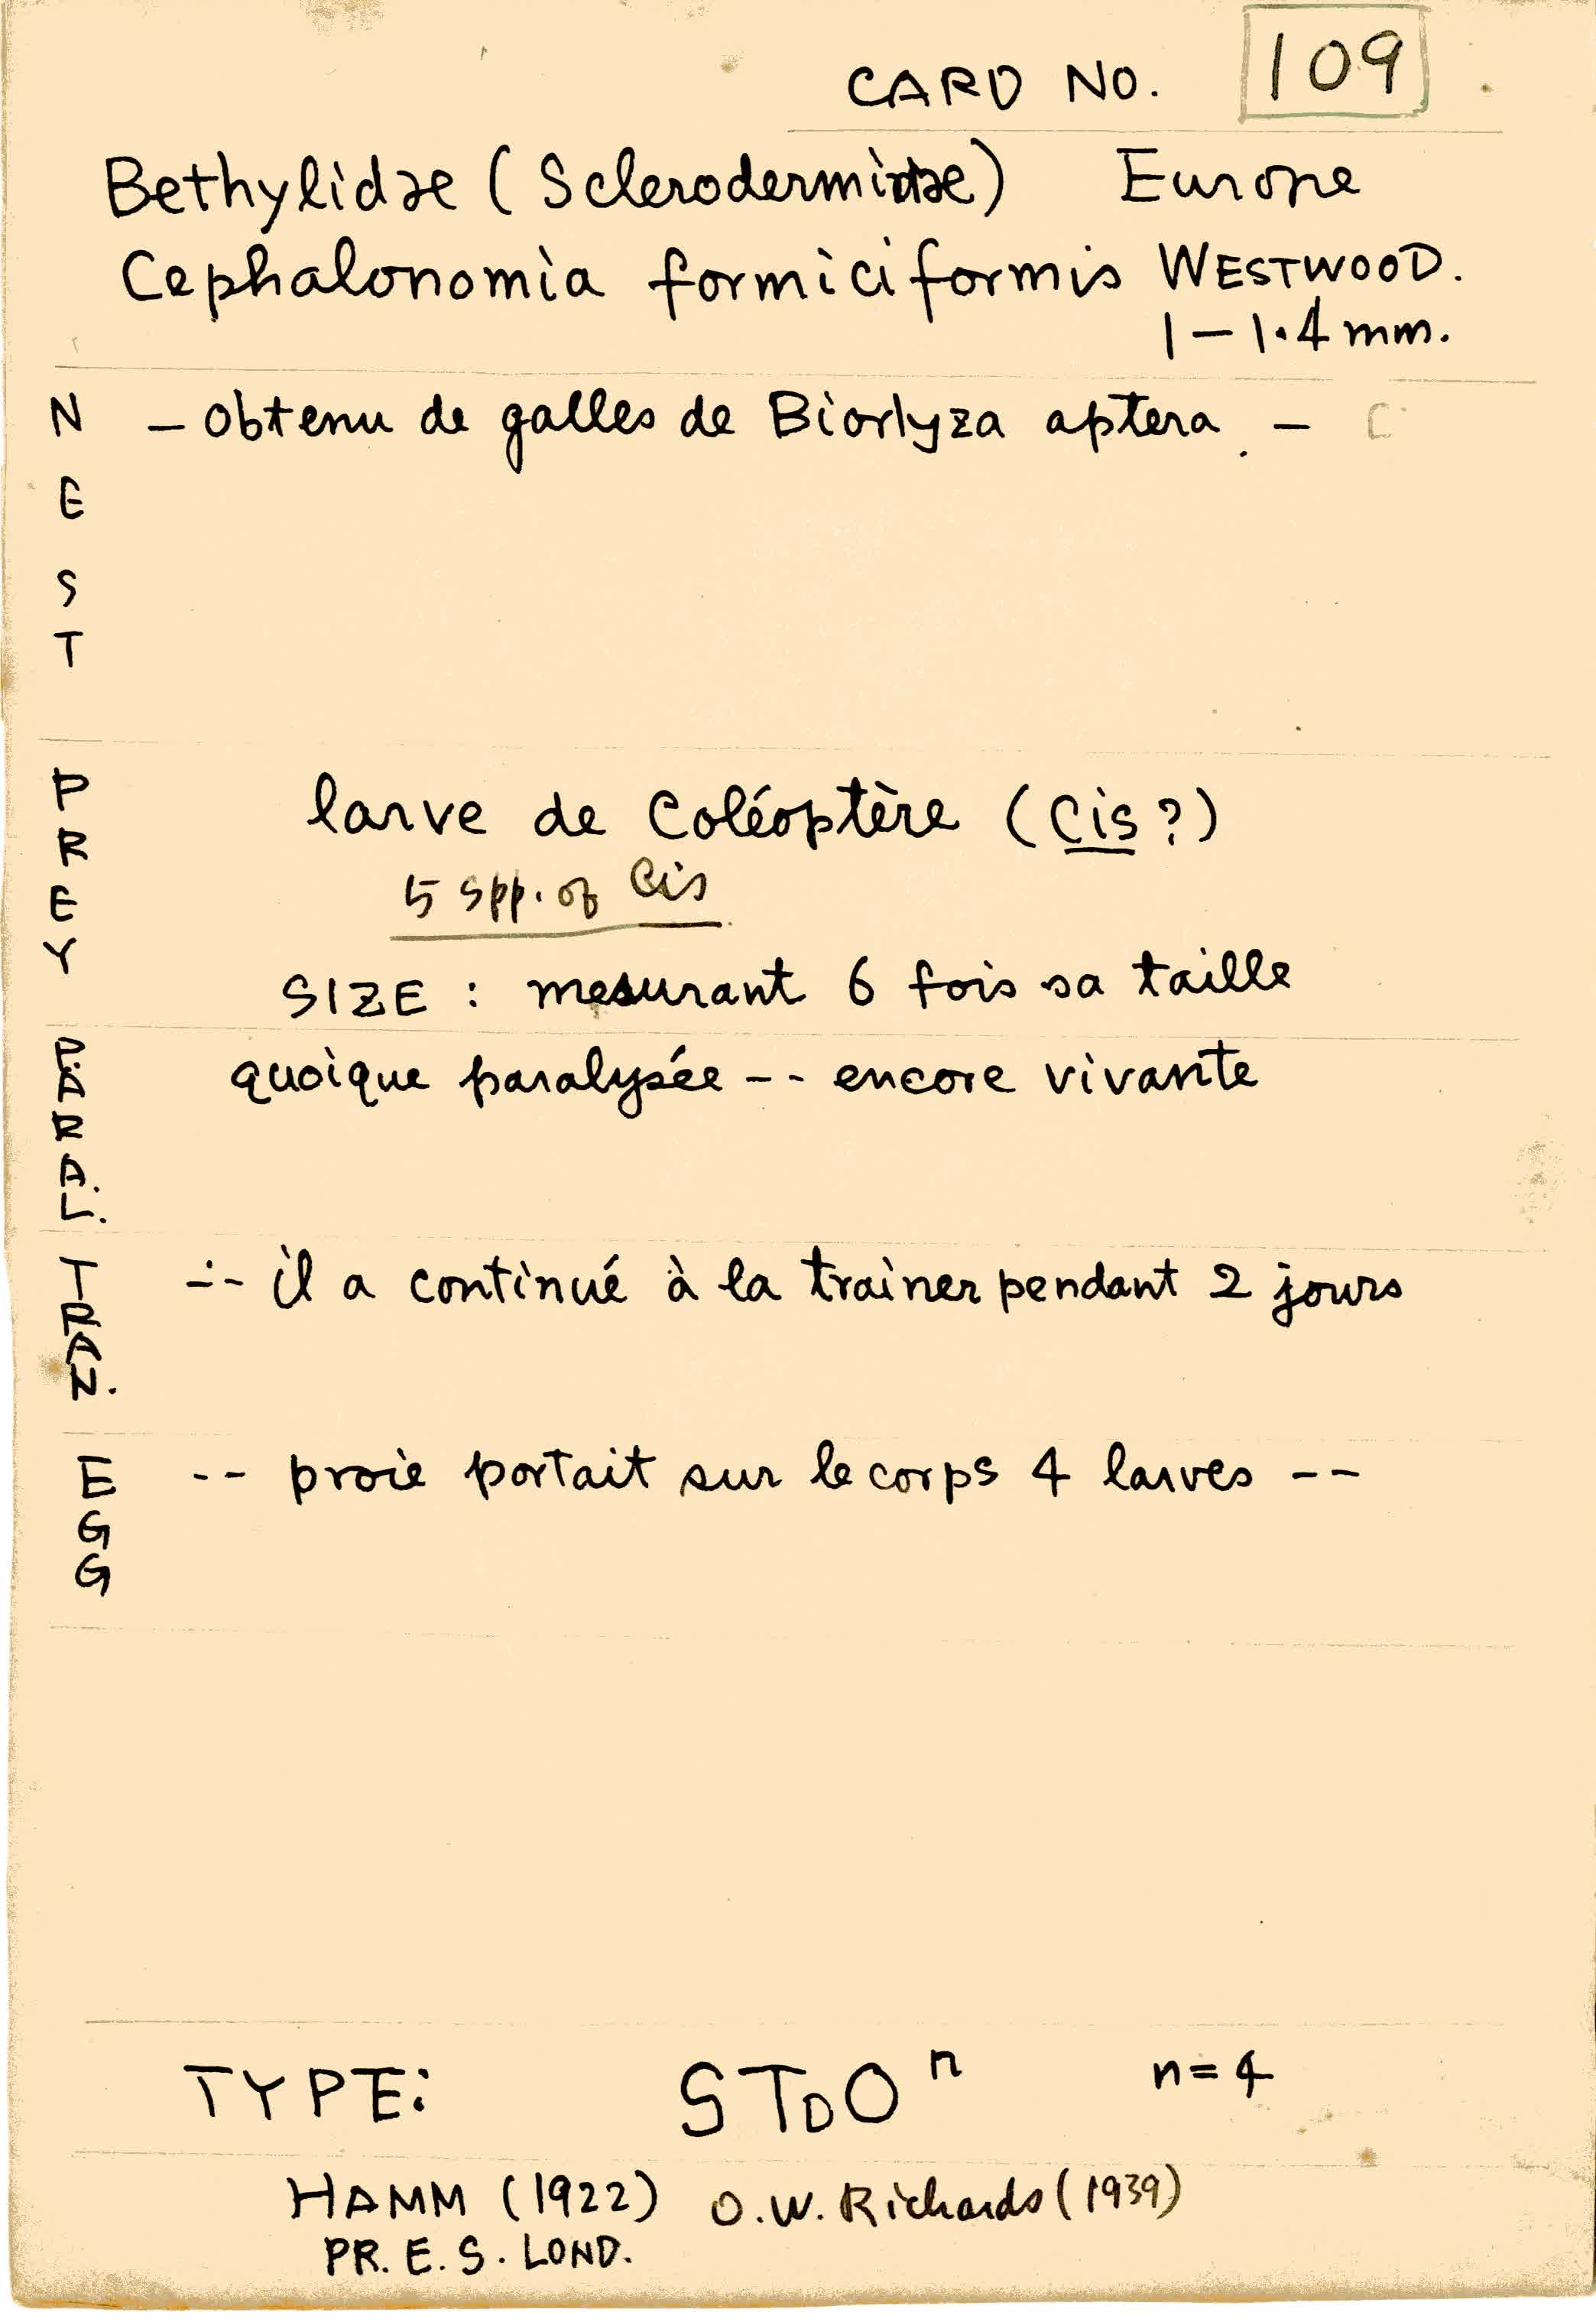 CARD NO. 109
Bethylidae (Sclerodermidae) Europe
Cephalonomia formiciformis WESTWOOD.
1-1.4 mm.
NEST – obtenu de galles de Biorhyza aptera. –
PREY larve de Coléoptère (Cis?)
5 spp. of Cis
SIZE : mesurant 6 fois sa taille
PARAL. quoique paralysée -- encore vivante
TRAN. -- il a continué à la trainer pendant 2 jours
EGG -- proie portait sur le corps 4 larves --
TYPE: STDOⁿ n=4
HAMM (1922) O.W. Richards (1939)
PR. E. S. LOND.